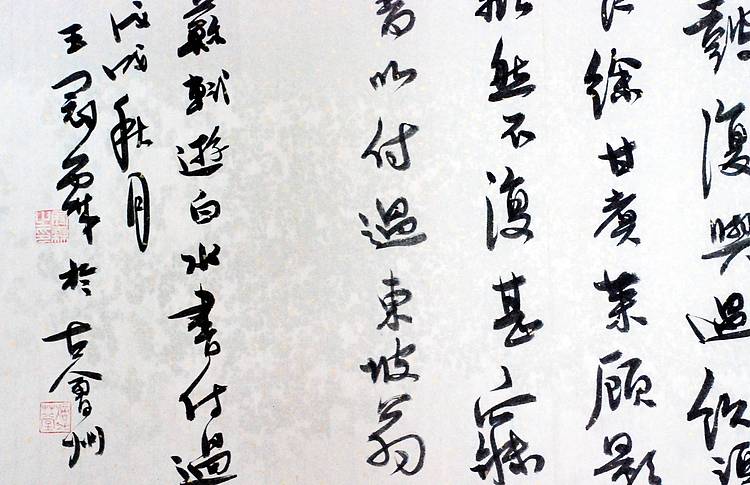 鼓復與過飲酒
餘甘煮菜顧影
然不復甚寐
書以付過東坡翁
蘇軾遊白水書付過
戊戌秋月
王於古會州